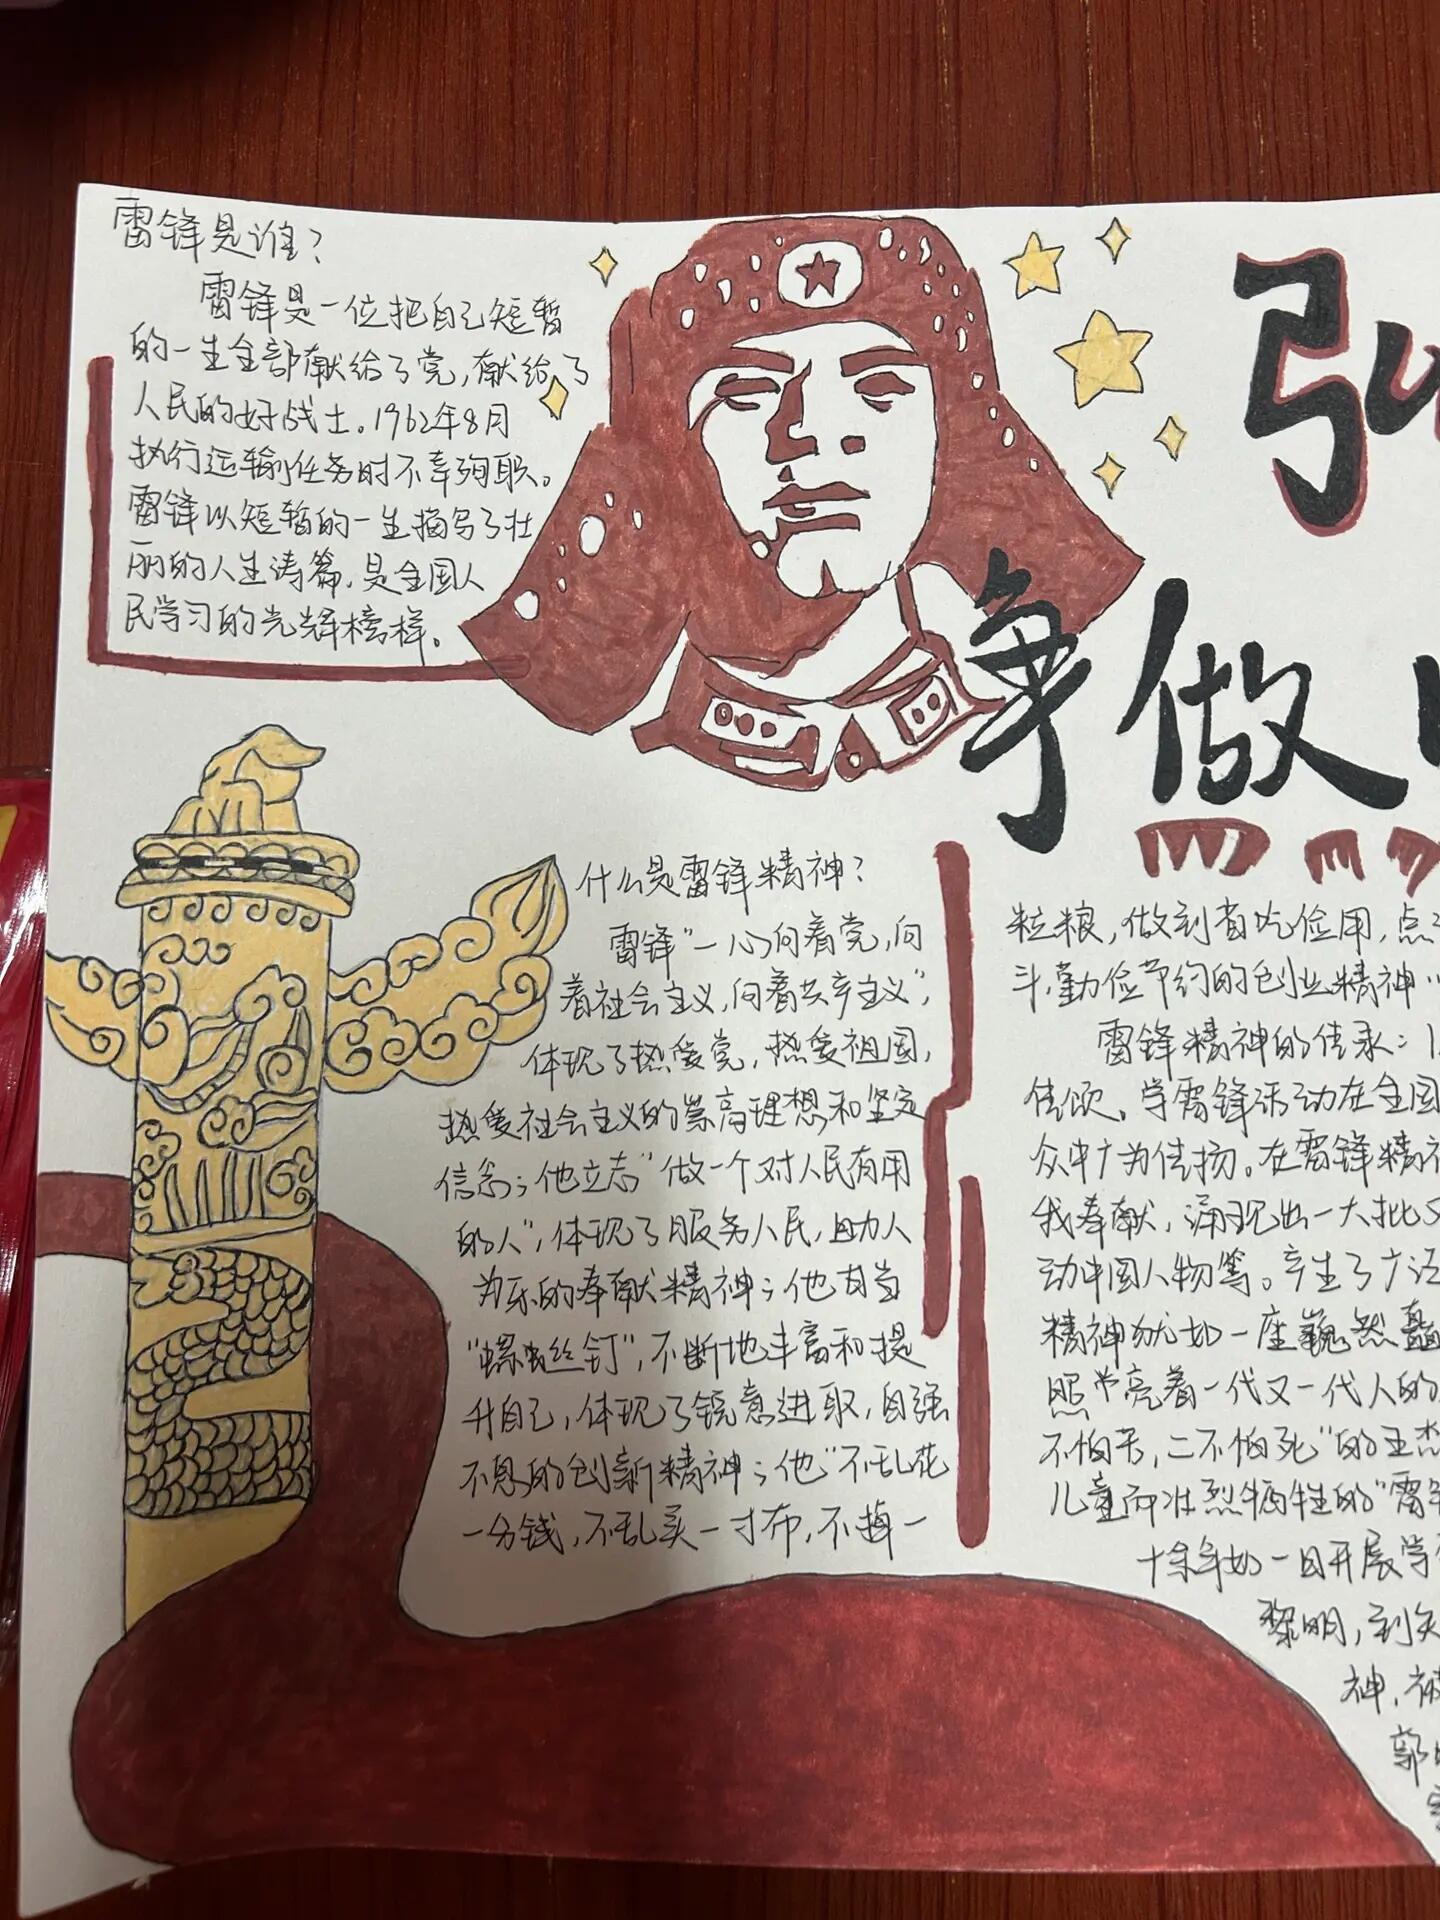 雷锋是谁?
雷锋是一位把自己短暂
的一生全部献给了党,献给了
人民的好战士。1962年8月
执行运输任务时不幸殉职。
雷锋以短暂的一生描写了壮
丽的人生诗篇,是全国人
民学习的光辉榜样。
弘
争做
什么是雷锋精神?
雷锋"一心向着党,向
着社会主义,向着共产主义",
体现了热爱党,热爱祖国,
热爱社会主义的崇高理想和坚定
信念;他立志"做一个对人民有用
的人",体现了服务人民,助人
为乐的奉献精神;他甘当
"螺丝钉",不断地丰富和提
升自己,体现了锐意进取,自强
不息的创新精神;他"不乱花
一分钱,不乱买一寸布,不掉一
粒粮,做到省吃俭用,点
斗,勤俭节约的创业精神
雷锋精神的传承:
传颂、学雷锋活动在全国
众中广为传扬。在雷锋精
我奉献,涌现出一大批
动中国人物等。产生了广泛
精神犹如一座巍然矗
照亮着一代又一代人的
不怕苦,二不怕死"的王杰
儿童而壮烈牺牲的"雷锋
十余年如一日开展学
黎明,到
神,被
郭